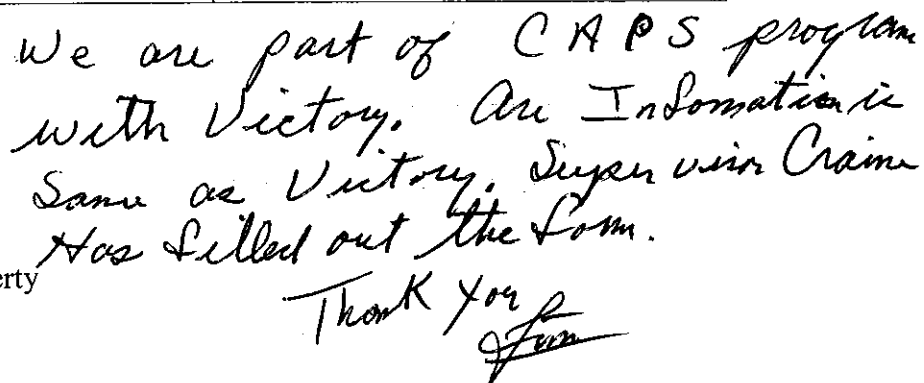 We are part of CAPS program
with Victory. Are Information is
Same as Victory. Supervisor Craine
Has filled out the form.
erty
Thank You
Jim